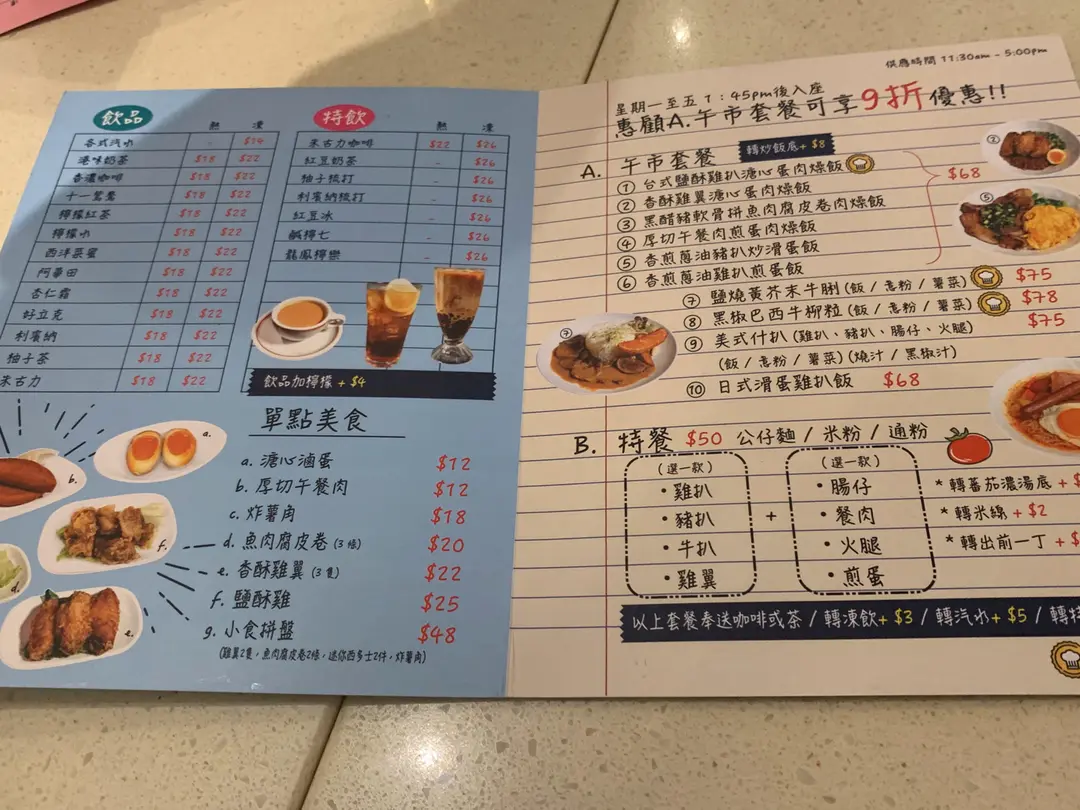 飲品
熱 凍
各式汽水 - $14
港味奶茶 $18 $22
香濃咖啡 $18 $22
十一鴛鴦 $18 $22
檸檬紅茶 $18 $22
檸檬水 $18 $22
西洋菜蜜 $18 $22
阿華田 $18 $22
杏仁霜 $18 $22
好立克 $18 $22
利賓納 $18 $22
柚子茶 $18 $22
朱古力 $18 $22
特飲
熱 凍
朱古力咖啡 $22 $26
紅豆奶茶 - $26
柚子梳打 - $26
利賓納梳打 - $26
紅豆冰 - $26
鹹檸七 - $26
龍鳳檸樂 - $26
飲品加檸檬 + $4
單點美食
a. 溏心滷蛋 $12
b. 厚切午餐肉 $12
c. 炸薯角 $18
d. 魚肉腐皮卷 (3條) $20
e. 香酥雞翼 (3隻) $22
f. 鹽酥雞 $25
g. 小食拼盤 $48
(雞翼2隻, 魚肉腐皮卷2條, 迷你西多士2件, 炸薯角)
a.
b.
f.
d.
e.
供應時間 11:30am - 5:00pm
星期一至五 1:45pm後入座
惠顧A.午市套餐可享9折優惠!!
A. 午市套餐 轉炒飯底+ $8
① 台式鹽酥雞扒溏心蛋肉燥飯
② 香酥雞翼溏心蛋肉燥飯
③ 黑醋豬軟骨拼魚肉腐皮卷肉燥飯
④ 厚切午餐肉煎蛋肉燥飯
⑤ 香煎蔥油豬扒炒滑蛋飯
⑥ 香煎蔥油雞扒煎蛋飯
$68
⑦ 鹽燒黃芥末牛脷 (飯 / 意粉 / 薯菜) $75
⑧ 黑椒巴西牛柳粒 (飯 / 意粉 / 薯菜) $78
⑨ 美式什扒 (雞扒、豬扒、腸仔、火腿) $75
(飯 / 意粉 / 薯菜) (燒汁 / 黑椒汁)
⑩ 日式滑蛋雞扒飯 $68
②
⑤
⑦
B. 特餐 $50 公仔麵 / 米粉 / 通粉
(選一款)
・雞扒
・豬扒
・牛扒
・雞翼
+
(選一款)
・腸仔
・餐肉
・火腿
・煎蛋
* 轉蕃茄濃湯底 + $
* 轉米線 + $2
* 轉出前一丁 + $
以上套餐奉送咖啡或茶 / 轉凍飲+ $3 / 轉汽水+ $5 / 轉特